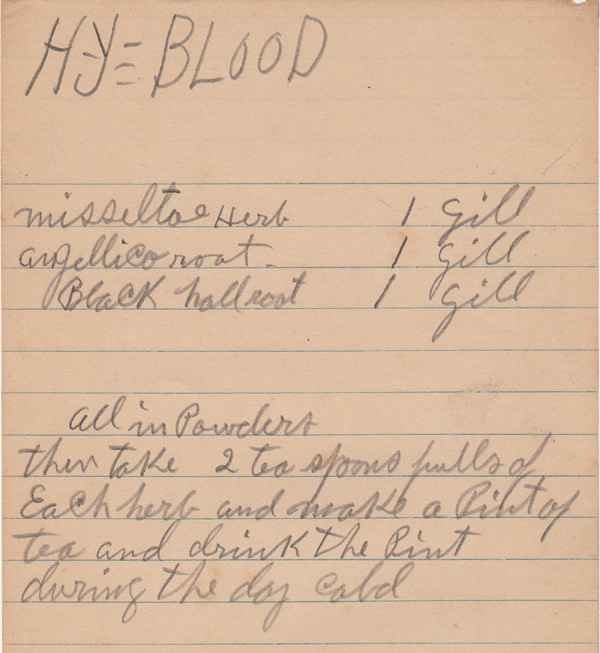 H-Y= BLOOD
misseltoe Herb 1 Gill
angellico root - 1 Gill
Black hall root 1 Gill
all in Powders
then take 2 tea spoons fulls of
Each herb and make a Pint of
tea and drink the Pint
during the day cold